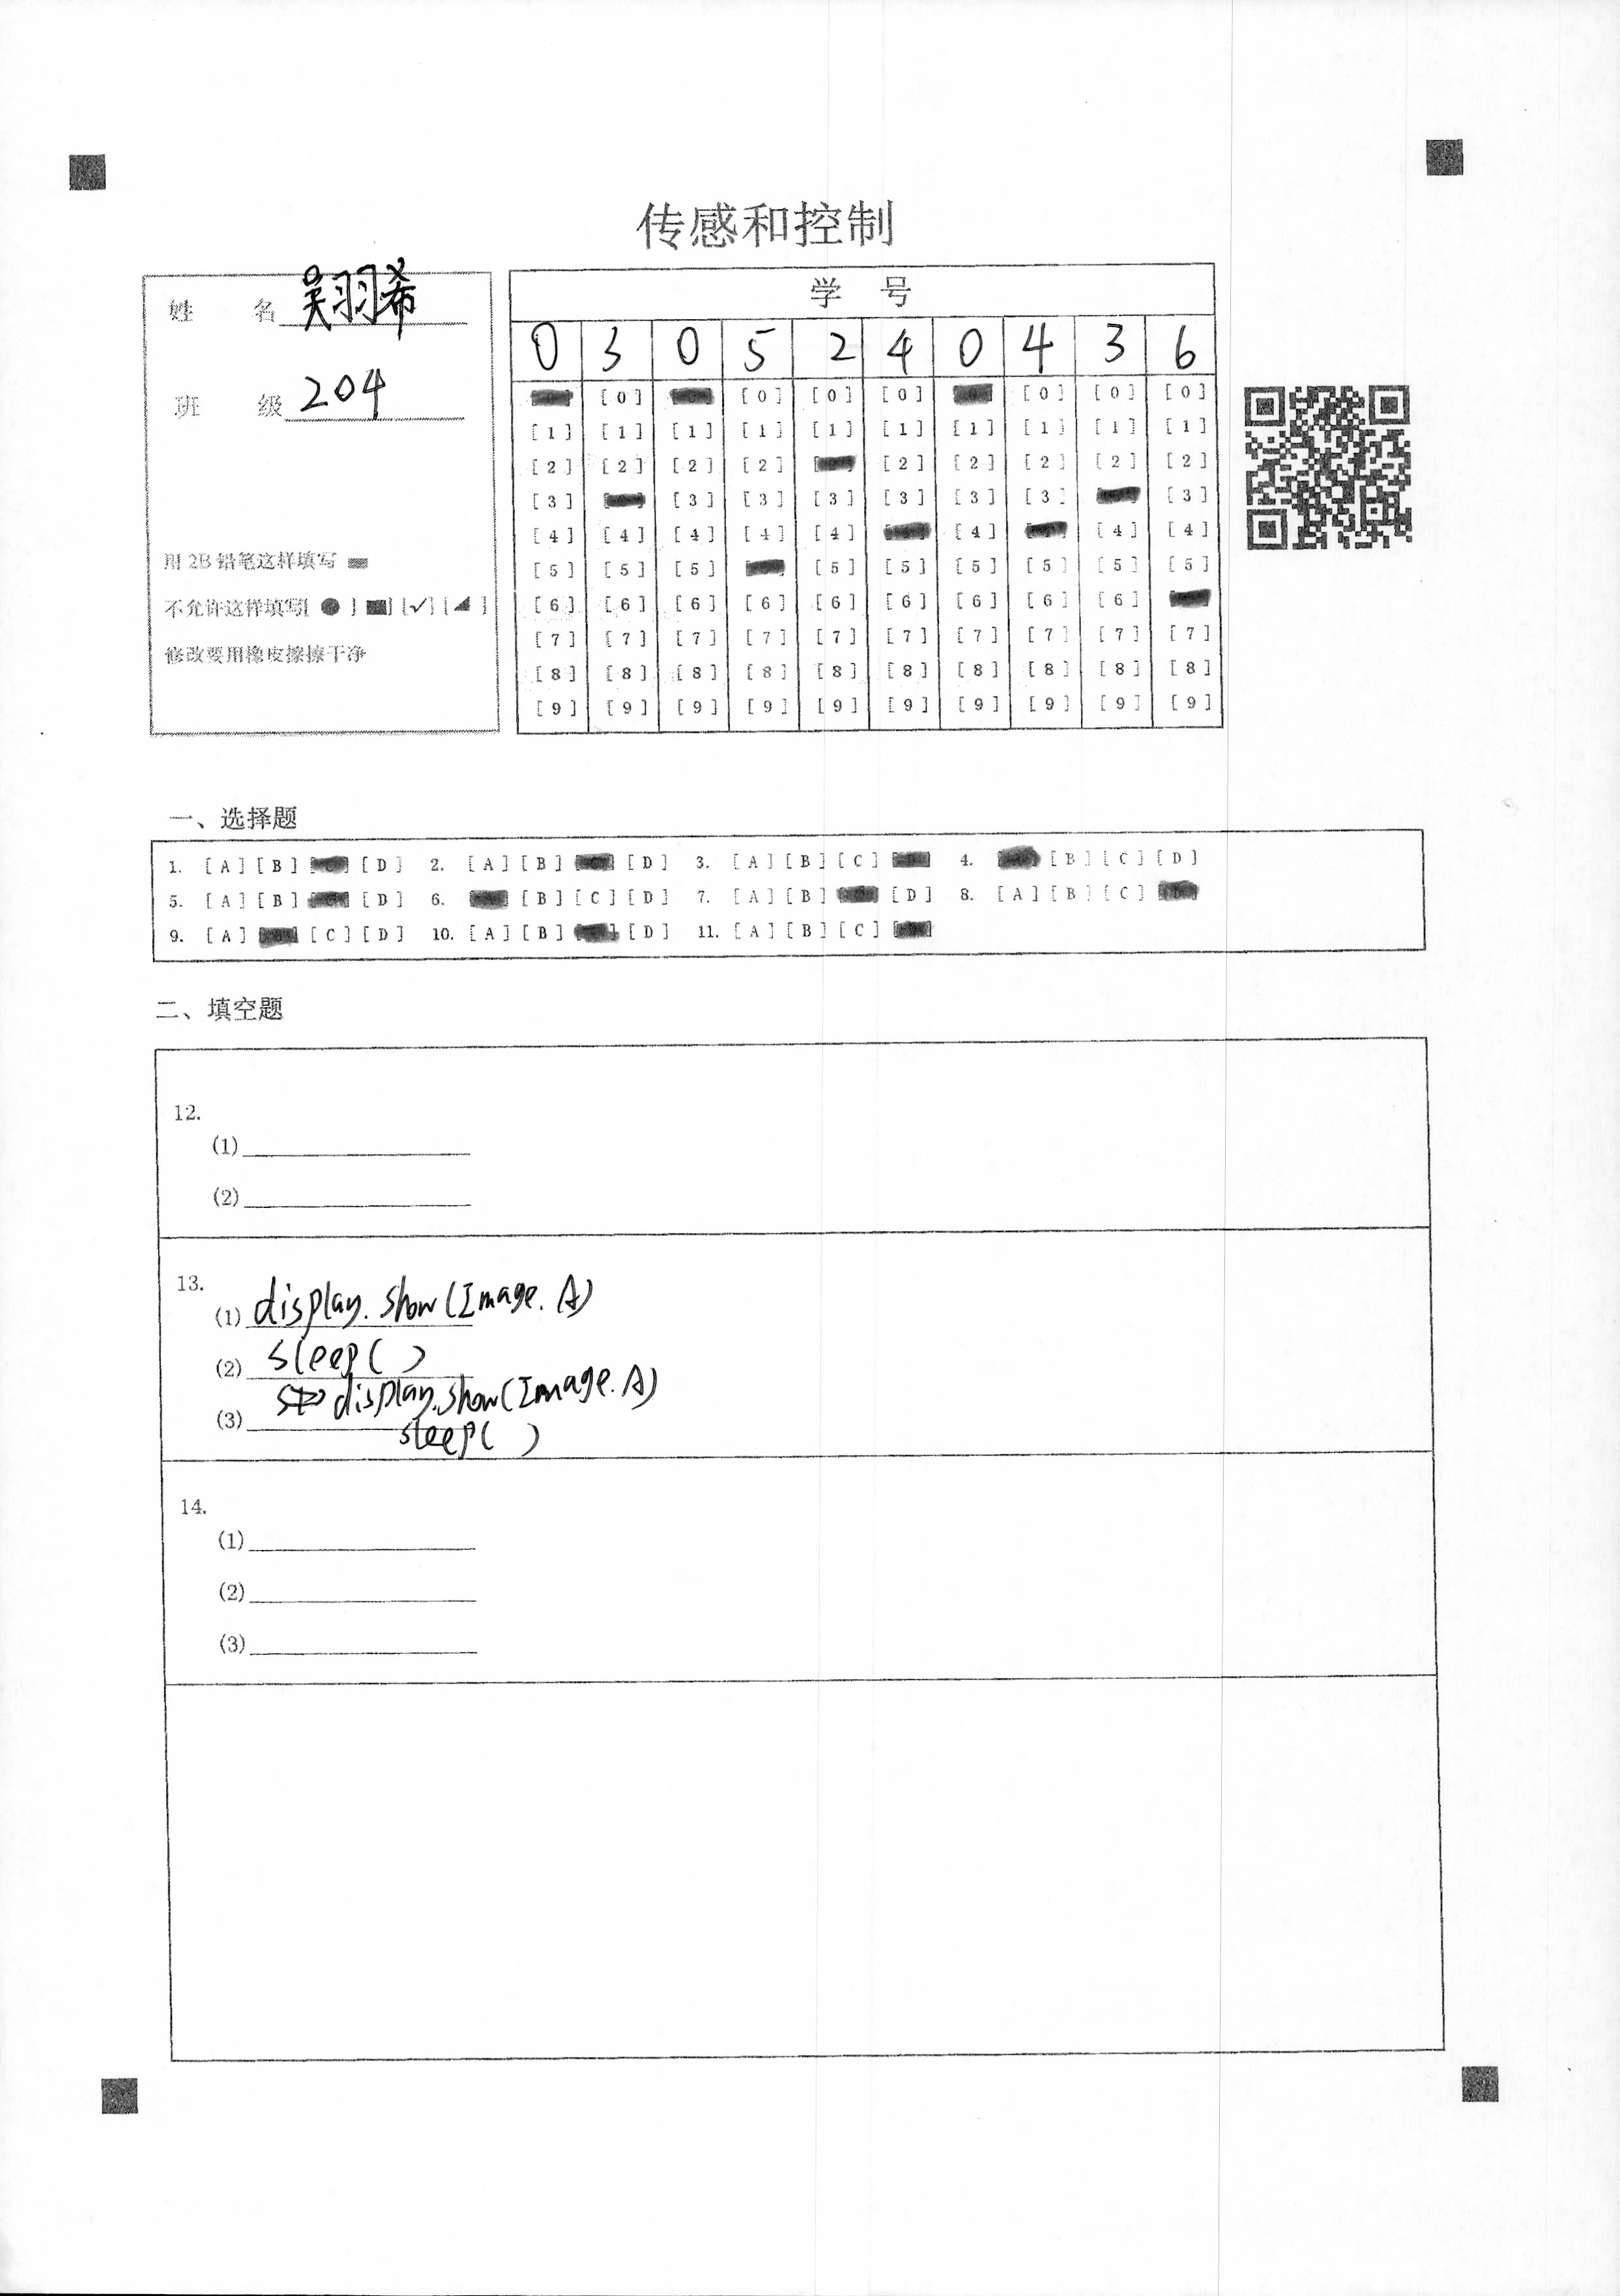 传感和控制
姓 名 吴羽希
班 级 204
用 2B 铅笔这样填写
不允许这样填写[ ● ] [■] [✓] [◢ ]
修改要用橡皮擦擦干净
学 号
0 3 0 5 2 4 0 4 3 6
[0] [0] [0] [0] [0] [0]
[1] [1] [1] [1] [1] [1] [1] [1] [1] [1]
[2] [2] [2] [2] [2] [2] [2] [2] [2]
[3] [3] [3] [3] [3] [3] [3] [3]
[4] [4] [4] [4] [4] [4] [4] [4]
[5] [5] [5] [5] [5] [5] [5] [5] [5]
[6] [6] [6] [6] [6] [6] [6] [6] [6]
[7] [7] [7] [7] [7] [7] [7] [7] [7] [7]
[8] [8] [8] [8] [8] [8] [8] [8] [8] [8]
[9] [9] [9] [9] [9] [9] [9] [9] [9] [9]
一、选择题
1. [A] [B] [D] 2. [A] [B] [D] 3. [A] [B] [C] 4. [B] [C] [D]
5. [A] [B] [D] 6. [B] [C] [D] 7. [A] [B] [D] 8. [A] [B] [C]
9. [A] [C] [D] 10. [A] [B] [D] 11. [A] [B] [C]
二、填空题
12.
(1)
(2)
13.
(1) display.show(Image.A)
(2) sleep( )
(3) display.show(Image.A)
sleep( )
14.
(1)
(2)
(3)